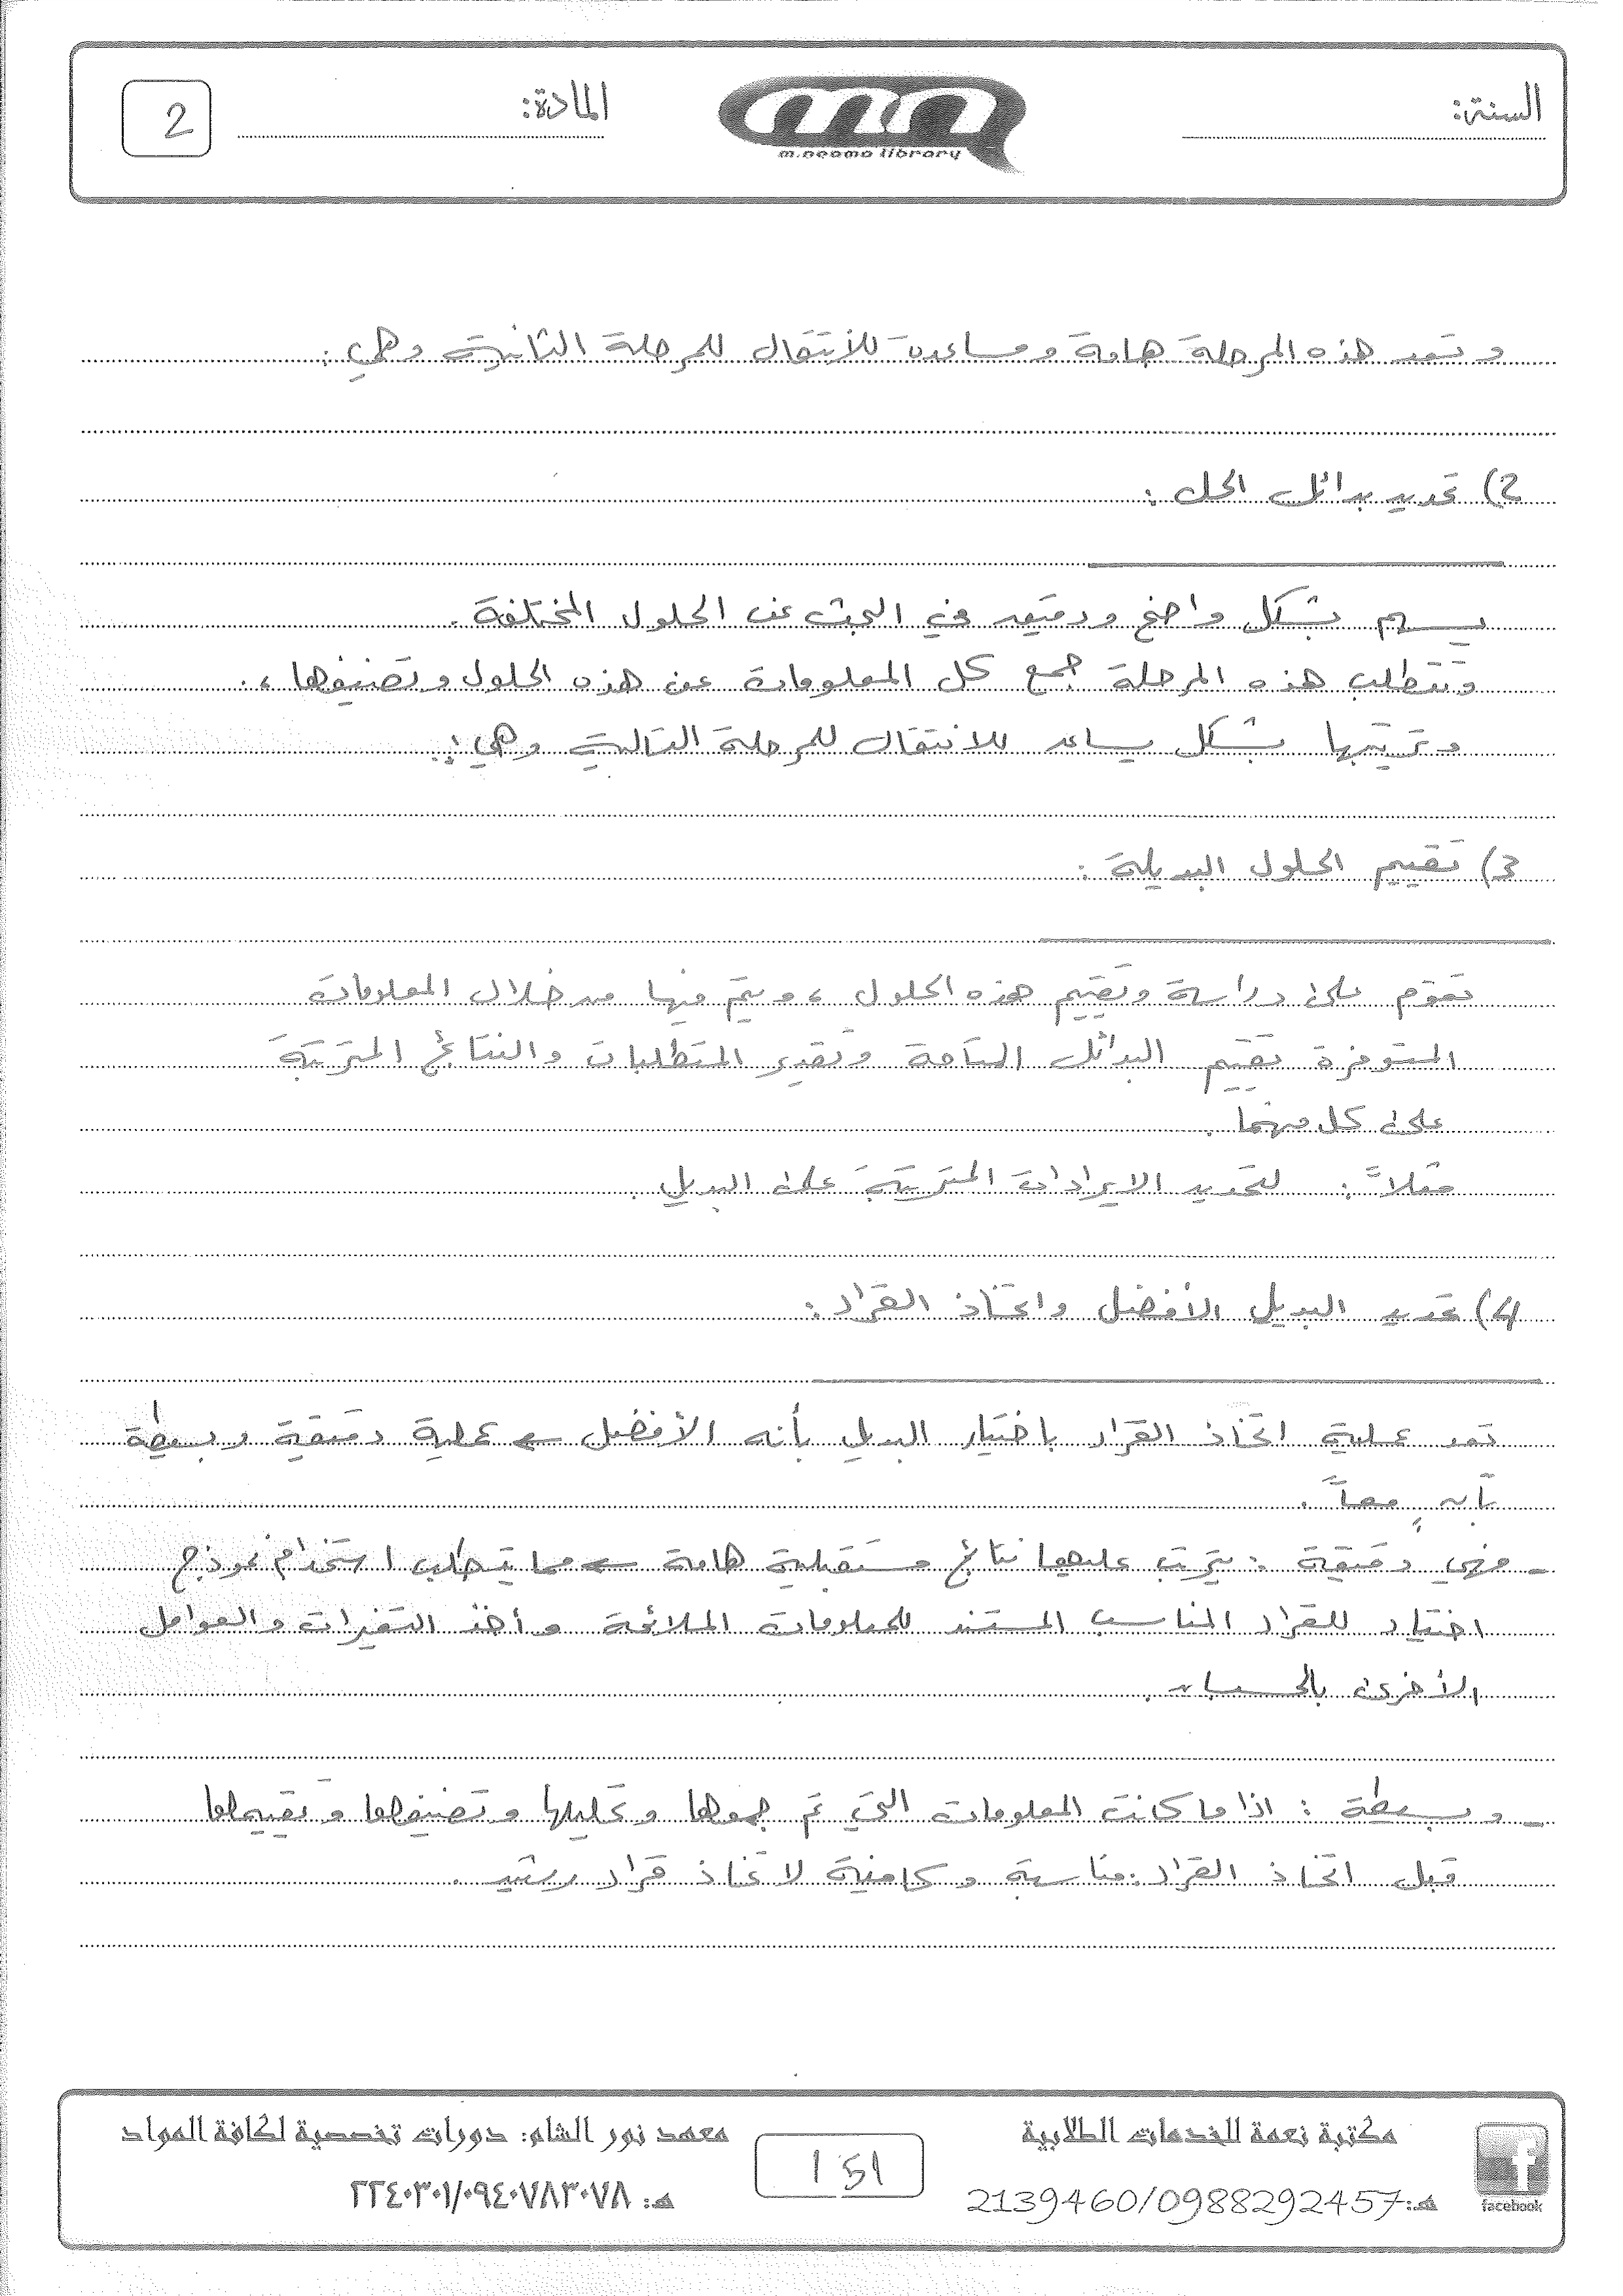 السنة:
m.neama library
المادة:
2
وتعد هذه المرحلة هامة ومساعدة للأنتقال للمرحلة الثانية وهي :
2) تحديد بدائل الحل :
يسهم بشكل واضح ودقيق في البحث عن الحلول المختلفة .
وتتطلب هذه المرحلة جمع كل المعلومات عن هذه الحلول وتصنيفها ،
وترتيبها بشكل يساعد للانتقال للمرحلة التالية وهي :
3) تقييم الحلول البديلة :
تقوم على دراسة وتقييم هذه الحلول ، ويتم فيها من خلال المعلومات
المتوفرة تقييم البدائل المتاحة وتقدير المتطلبات والنتائج المترتبة
على كل منهما .
مثلاً : لتحديد الايرادات المترتبة على البديل .
4) تحديد البديل الأفضل واتخاذ القرار :
تعد عملية اتخاذ القرار باختيار البديل بأنه الأفضل ← عملية دقيقة وبسيطة
بآنٍ معاً .
- فهي دقيقة : يترتب عليها نتائج مستقبلية هامة ← مما يتطلب استخدام نموذج
اختيار للقرار المناسب المستند للمعلومات الملائمة وأخذ التغيرات والعوامل
الأخرى بالحسبان .
- وبسيطة : اذا ما كانت المعلومات التي تم جمعها وتحليلها وتصنيفها وتقييمها
قبل اتخاذ القرار : مناسبة وكافية لاتخاذ قرار رشيد .
facebook
مكتبة نعمة للخدمات الطلابية
هـ:2139460/0988292457
151
معهد نور الشام: دورات تخصصية لكافة المواد
هـ: ٢٢٤٠٣٠١/٠٩٤٠٧٨٣٠٧٨